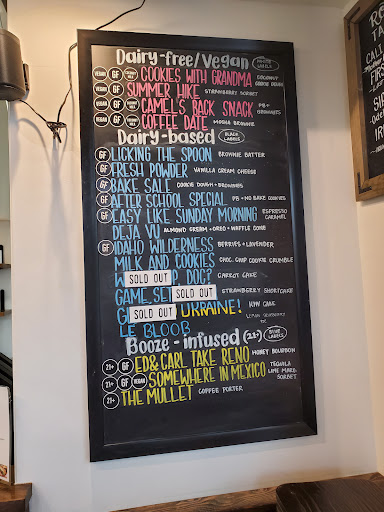 Dairy-free/Vegan WHITE LABELS
VEGAN GF COOKIES WITH GRANDMA COCONUT COOKIE DOUGH
VEGAN GF SUMMER HIKE STRAWBERRY SORBET
VEGAN GF CAMEL'S BACK SNACK PB + BROWNIES
VEGAN GF COFFEE DATE MOCHA BROWNIE
Dairy-based BLACK LABELS
GF LICKING THE SPOON BROWNIE BATTER
GF FRESH POWDER VANILLA CREAM CHEESE
GF BAKE SALE COOKIE DOUGH + BROWNIES
GF AFTER SCHOOL SPECIAL PB + NO BAKE COOKIES
GF EASY LIKE SUNDAY MORNING ESPRESSO CARAMEL
DEJA VU ALMOND CREAM + OREO + WAFFLE CONE
GF IDAHO WILDERNESS BERRIES + LAVENDER
MILK AND COOKIES CHOC. CHIP COOKIE CRUMBLE
W SOLD OUT P, DOG? CARROT CAKE
GAME, SE SOLD OUT STRAWBERRY SHORTCAKE
G SOLD OUT UKRAINE! KYIV CAKE
LE BLOOB
Booze-infused (21+) BLUE LABELS
21+ GF ED & CARL TAKE RENO HONEY BOURBON
21+ GF VEGAN SOMEWHERE IN MEXICO TEQUILA LIME MARG. SORBET
21+ THE MULLET COFFEE PORTER